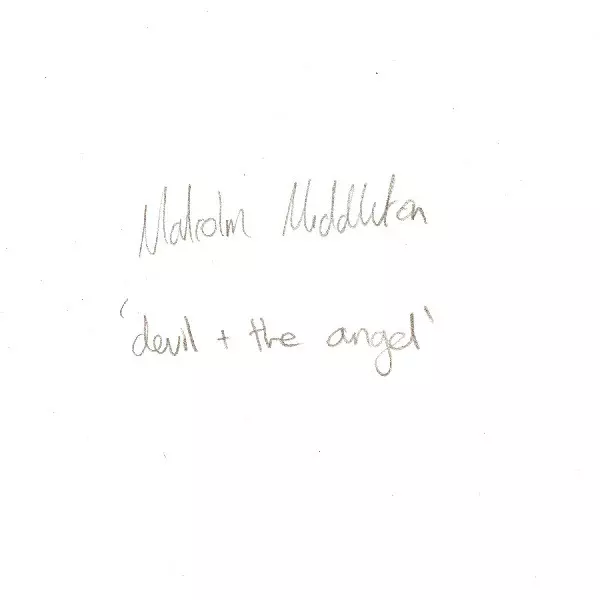 Malcolm Middleton
'devil + the angel'